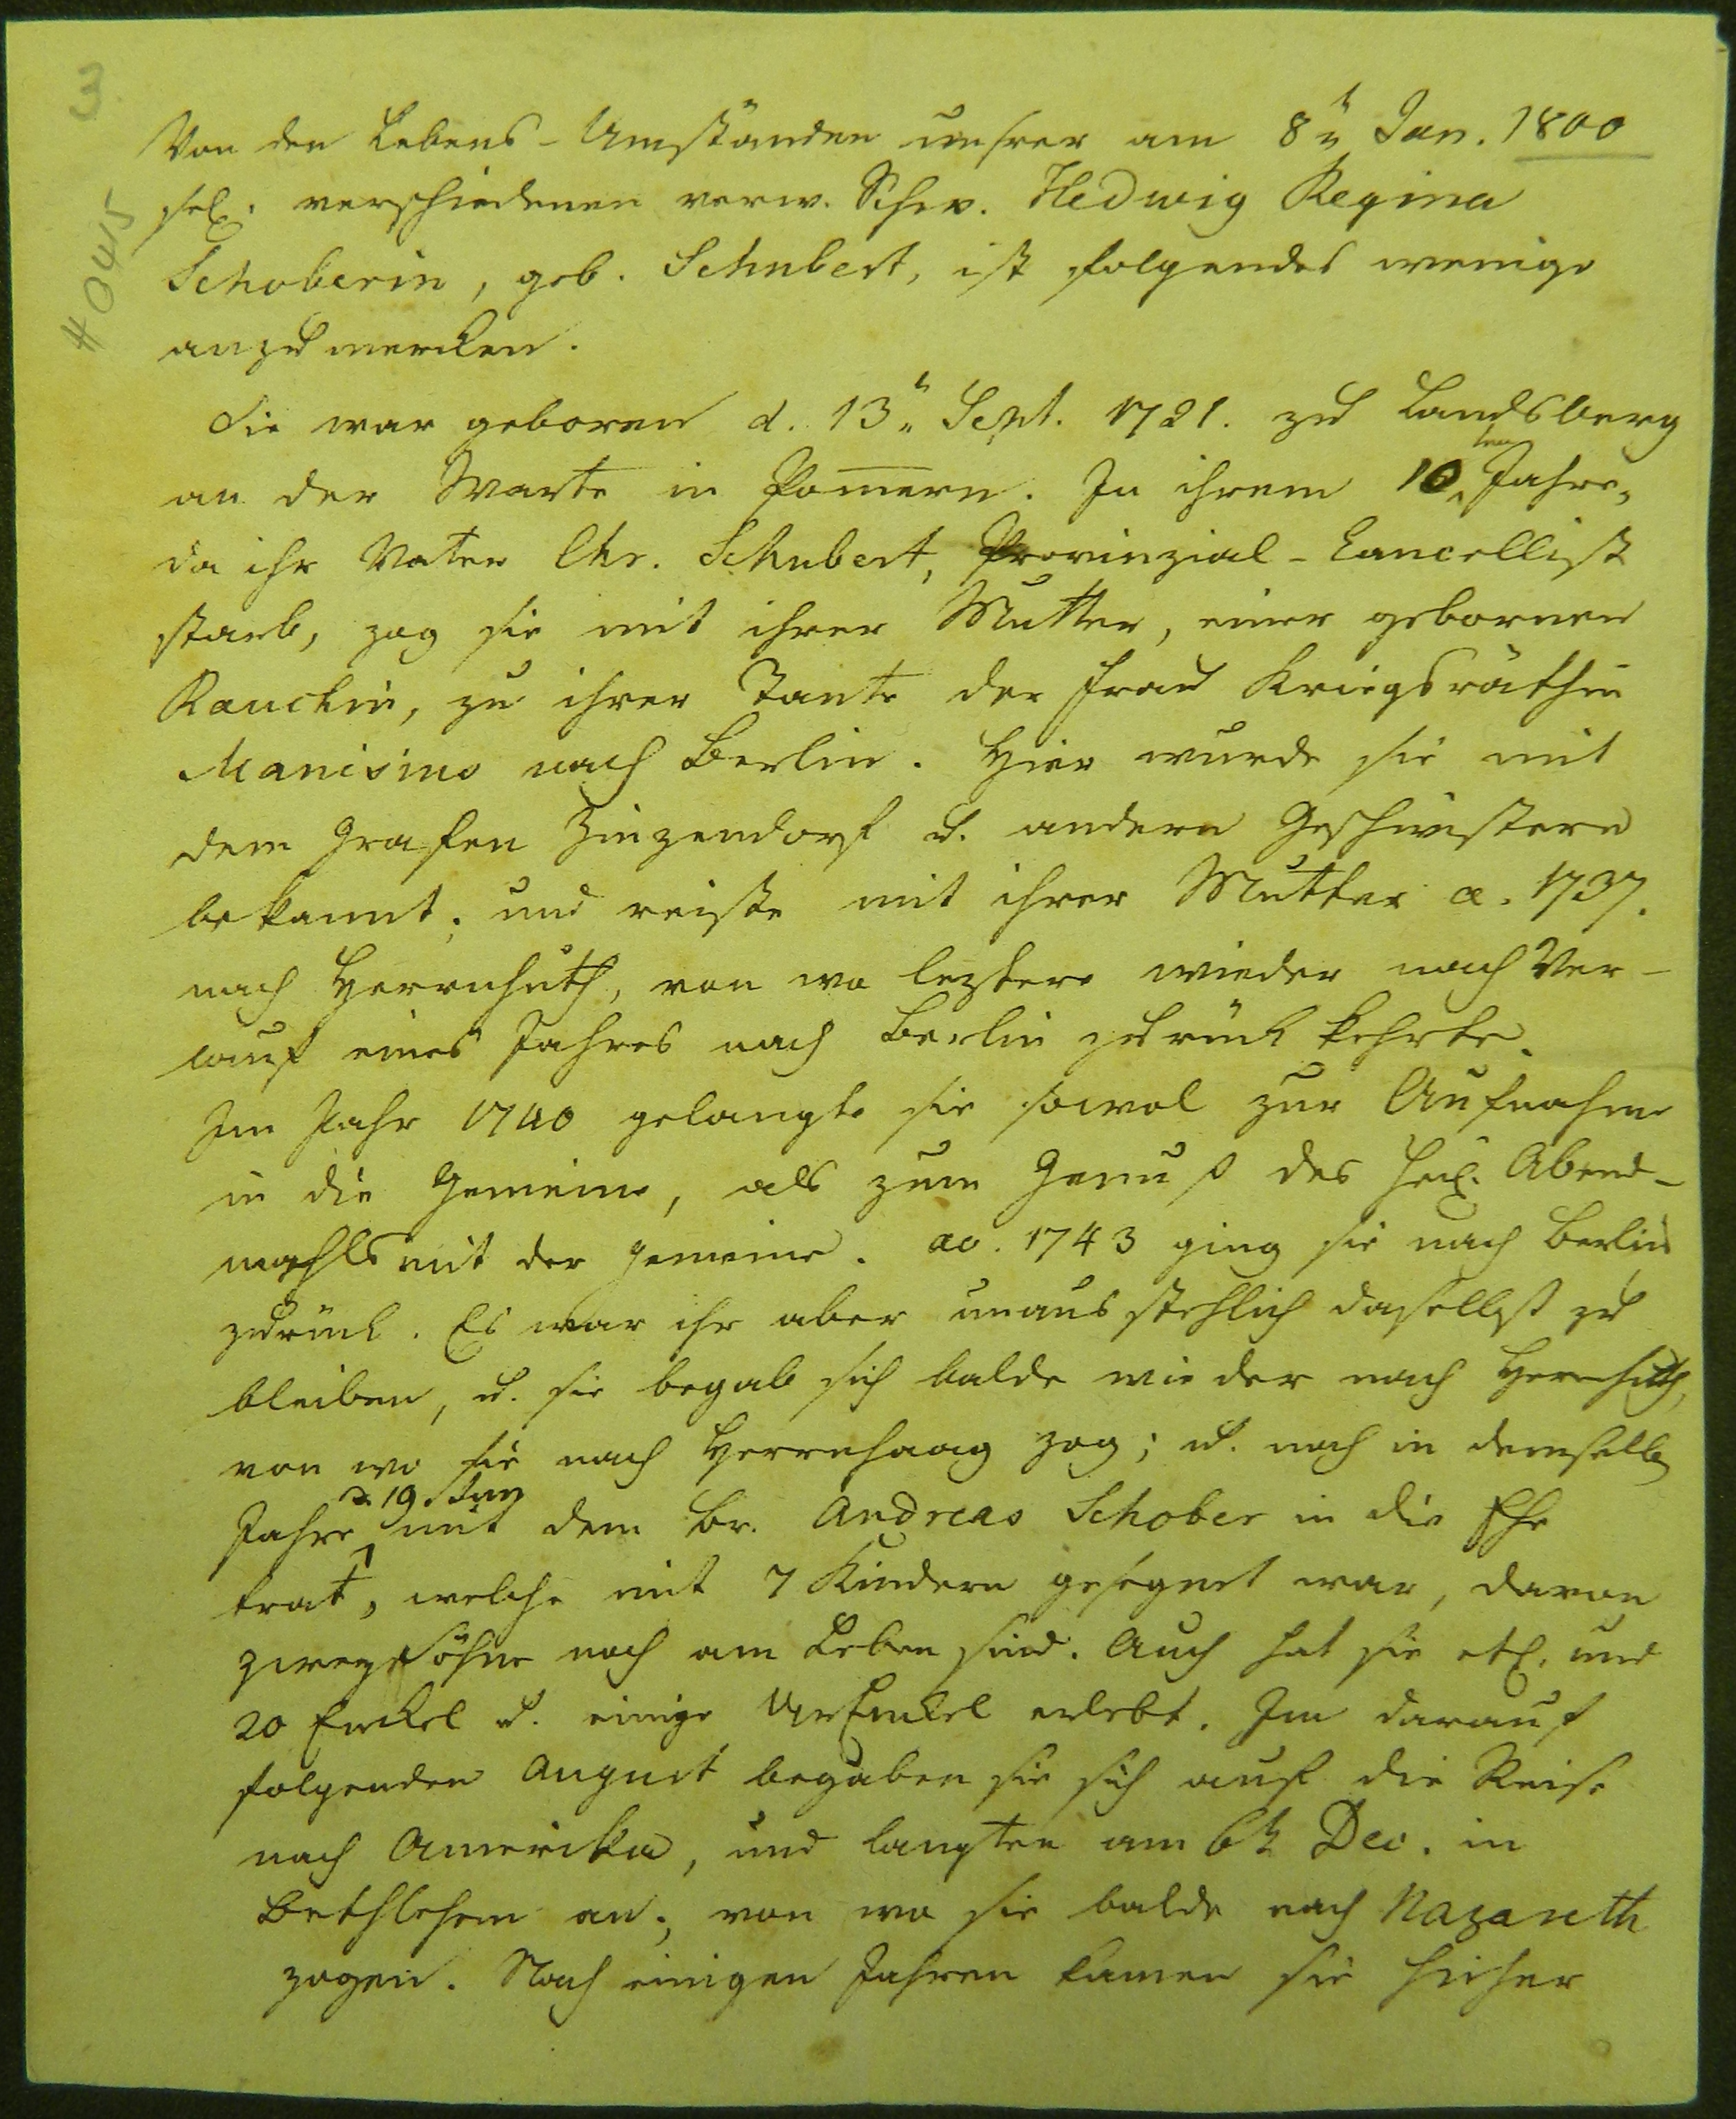 3
#0415
Von den Lebens-Umständen unsrer am 8n Jan. 1800
sel. verschiedenen verw. Schw. Hedwig Regina
Schoberin, geb. Schubert, ist folgendes wenige
anzumercken.
Sie war geboren d. 13n Sept. 1721. zu Landsberg
an der Warte in Pom̅ern. In ihrem 10ten Jahre,
da ihr Vater Chr. Schubert, Provinzial-Cancellist
starb, zog sie mit ihrer Mutter, einer gebornen
Rauckin, zu ihrer Tante der Frau Kriegsräthin
Manisius nach Berlin. Hier wurde sie mit
dem Grafen Zinzendorf u. andern Geschwistern
bekannt; und reiste mit ihrer Mutter a. 1737.
nach Herrnhuth, von wo leztere wieder nach Ver-
lauf eines Jahres nach Berlin zurück kehrte.
Im Jahr 1740 gelangte sie sowol zur Aufnahme
in die Gemeine, als zum Genuß des Heil. Abend-
mahls mit der Gemeine. ao. 1743 ging sie nach Berlin
zurück. Es war ihr aber unausstehlich daselbst zu
bleiben, u. sie begab sich balde wieder nach Herrnhuth,
von wo sie nach Herrnhaag zog; u. noch in demselb
d. 19. Jun
Jahre mit dem Br. Andreas Schober in die Ehe
trat, welche mit 7 Kindern gesegnet war, davon
zwey Söhne noch am Leben sind. Auch hat sie etl. und
20 Enckel u. einige UrEnckel erlebt. Im darauf
folgenden August begaben sie sich auf die Reise
nach Amerika, und langten am 6n Dec. in
Bethlehem an; von wo sie balde nach Nazareth
zogen. Nach einigen Jahren kamen sie hieher